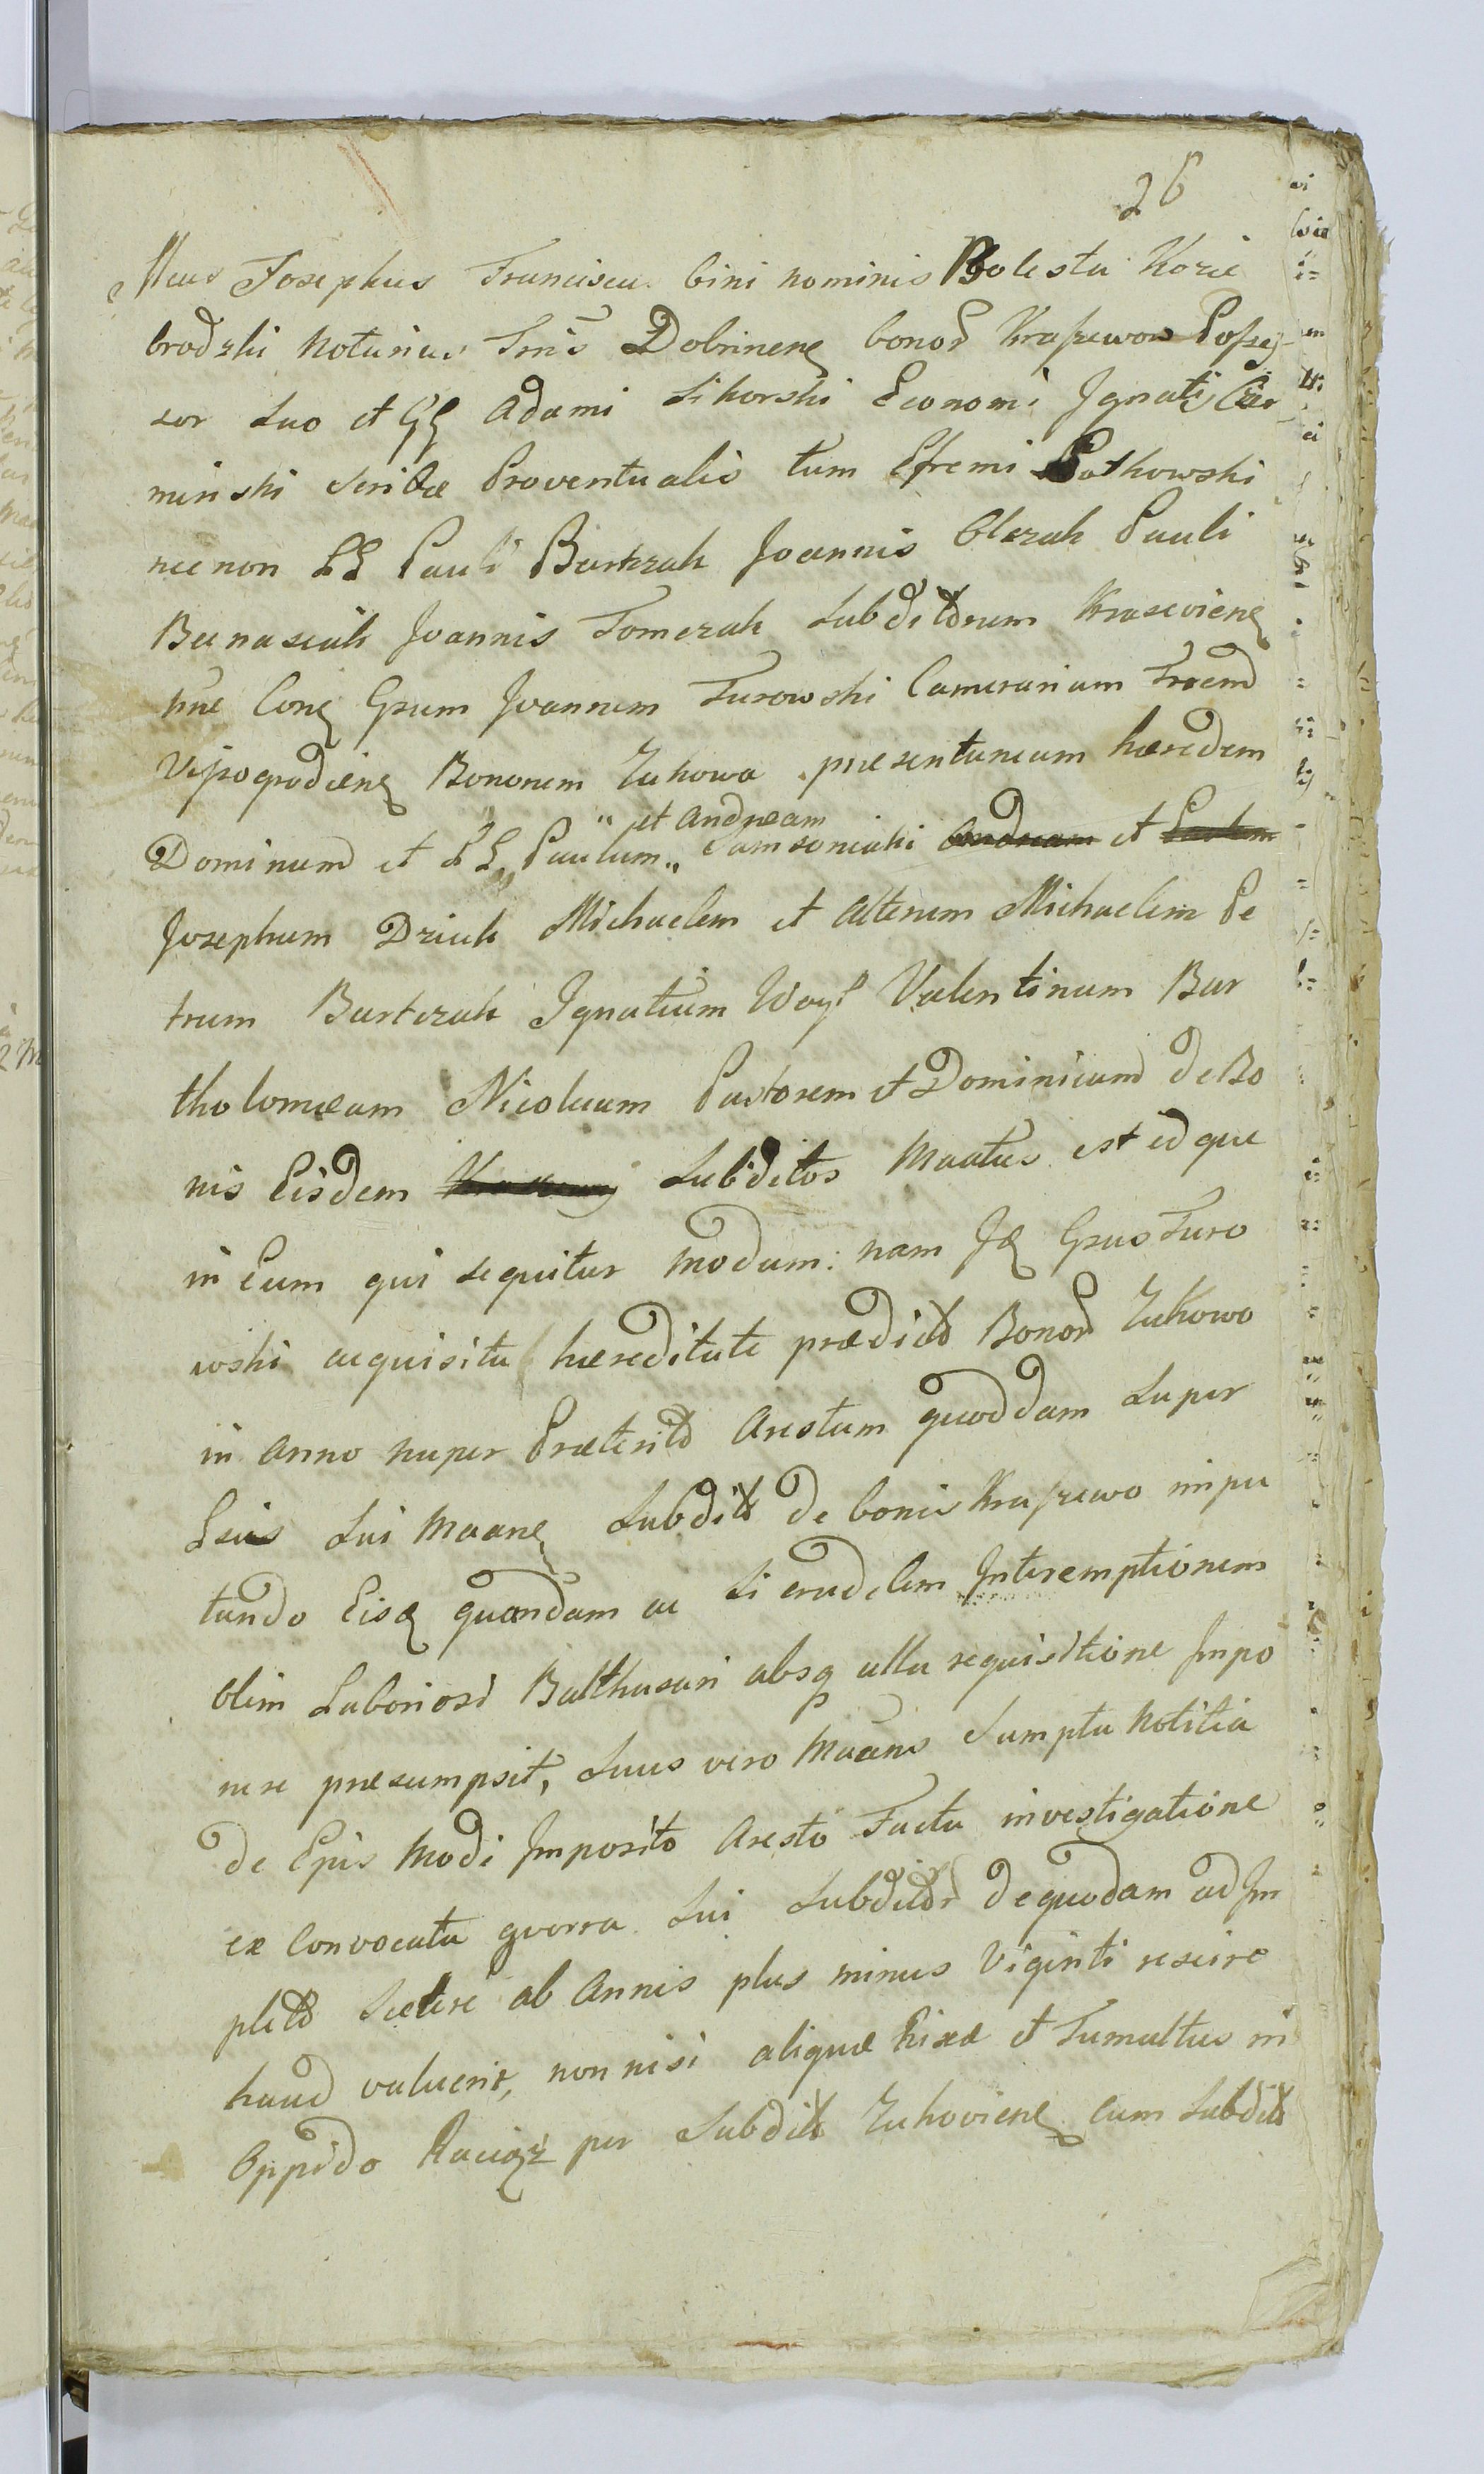 26
Mcus Josephus Franciscus bini nominis Bolesta Kozie
brodzki Notarius Trrīs Dobrinens bonor Kraszewo Posses
sor suo et GG Adami Sikorski Economi Ignatii Cier
minski Scribæ Proventualis tum Efremi Potkowski
nec non LL Pauli Bartczak Joannis Olczak Pauli
Banasiak Joannis Tomczak Subditorum Kraseviens
nrie Conq Gsum Joannem Turowski Camerarium Trrem
Vissogrodiens Bonorum Zukowa presentaneum hæredem
et Andream
Dominum et LL Paulum Samsoniaki Andream et
Josephum Dziuk Michaelem et alterum Michaelem Pe
trum Bartczak Ignatium Woyt Valentinum Bar
tholomæum Nicolaum Pastorem et Dominicum de Bo
nis Eisdem Subditos Maatus est idque
in Eum qui sequitur modum: nam Iq Gsus Turo
wski acquisita hæreditate prædict Bonor Zukowo
in Anno nuper Præterito Arestum quoddam super
Lsis sui Maane Subdit de bonis Kraszewo impu
tando Eisq quandam ac si crudelem Interemptionem
olim Laboriosi Balthasari absq ulla requisitione Impo
nere presumpsit, Suus vero Maans Sumpta Notitia
de Ejus modi Imposito Aresto Facta investigatione
ex Convocata gvorra Sui Subditor de quodam adim
pleto Scelere ab Annis plus minus Viginti rescire
haud valuerit, non nisi aliquæ Rixæ et Tumultus in
Oppido Raciąż per Subdit Zukoviens cum Subdit